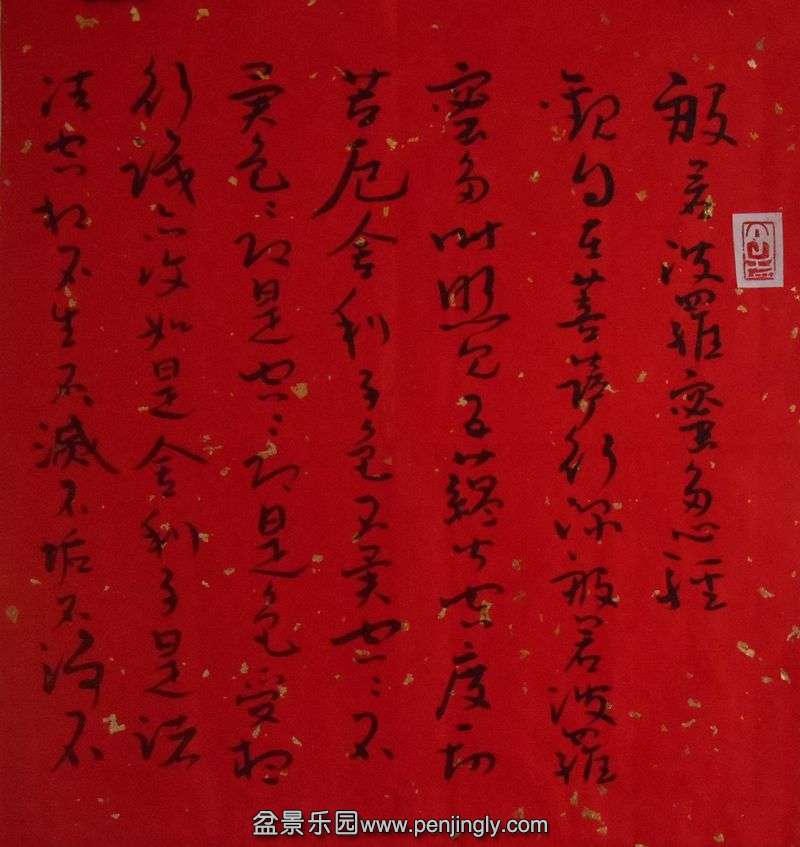 般若波羅蜜多心經
觀自在菩薩行深般若波羅
蜜多时照見五蘊皆空度一切
苦厄舍利子色不異空〻不
異色〻即是空〻即是色受想
行識亦復如是舍利子是諸
法空相不生不滅不垢不淨不
盆景乐园www.penjingly.com